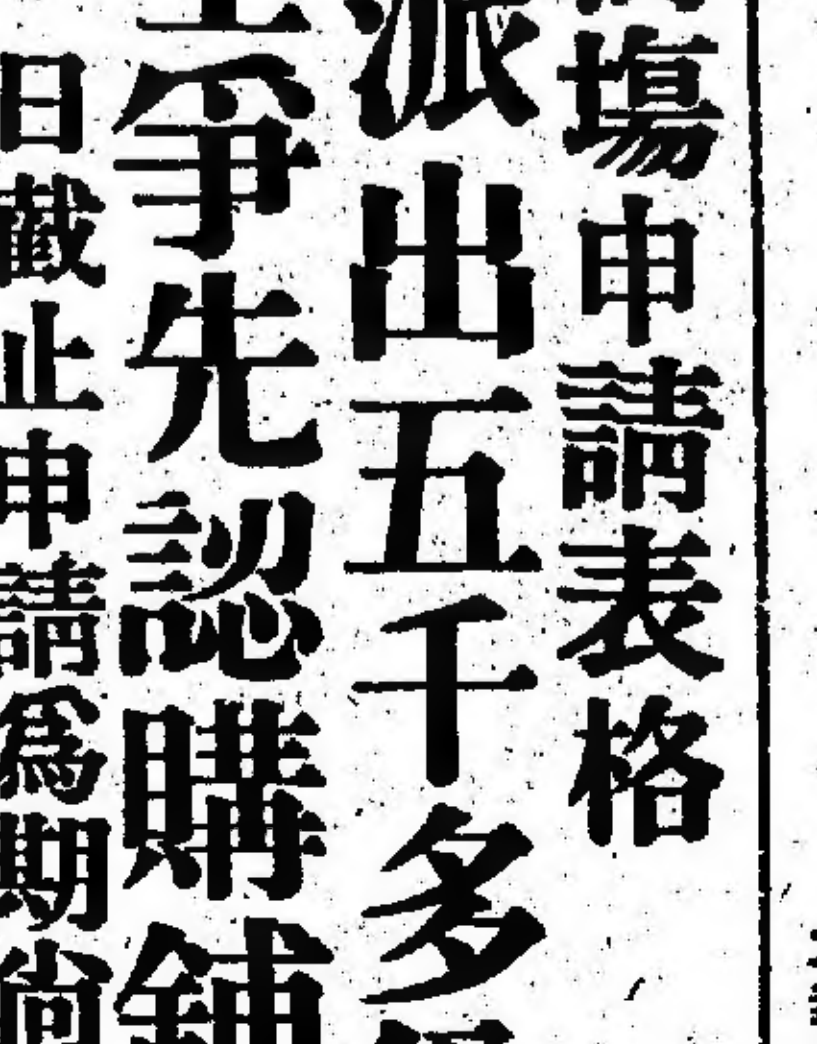 場申請表格
派出五千多
爭先認購鋪
日截止申請爲期尚